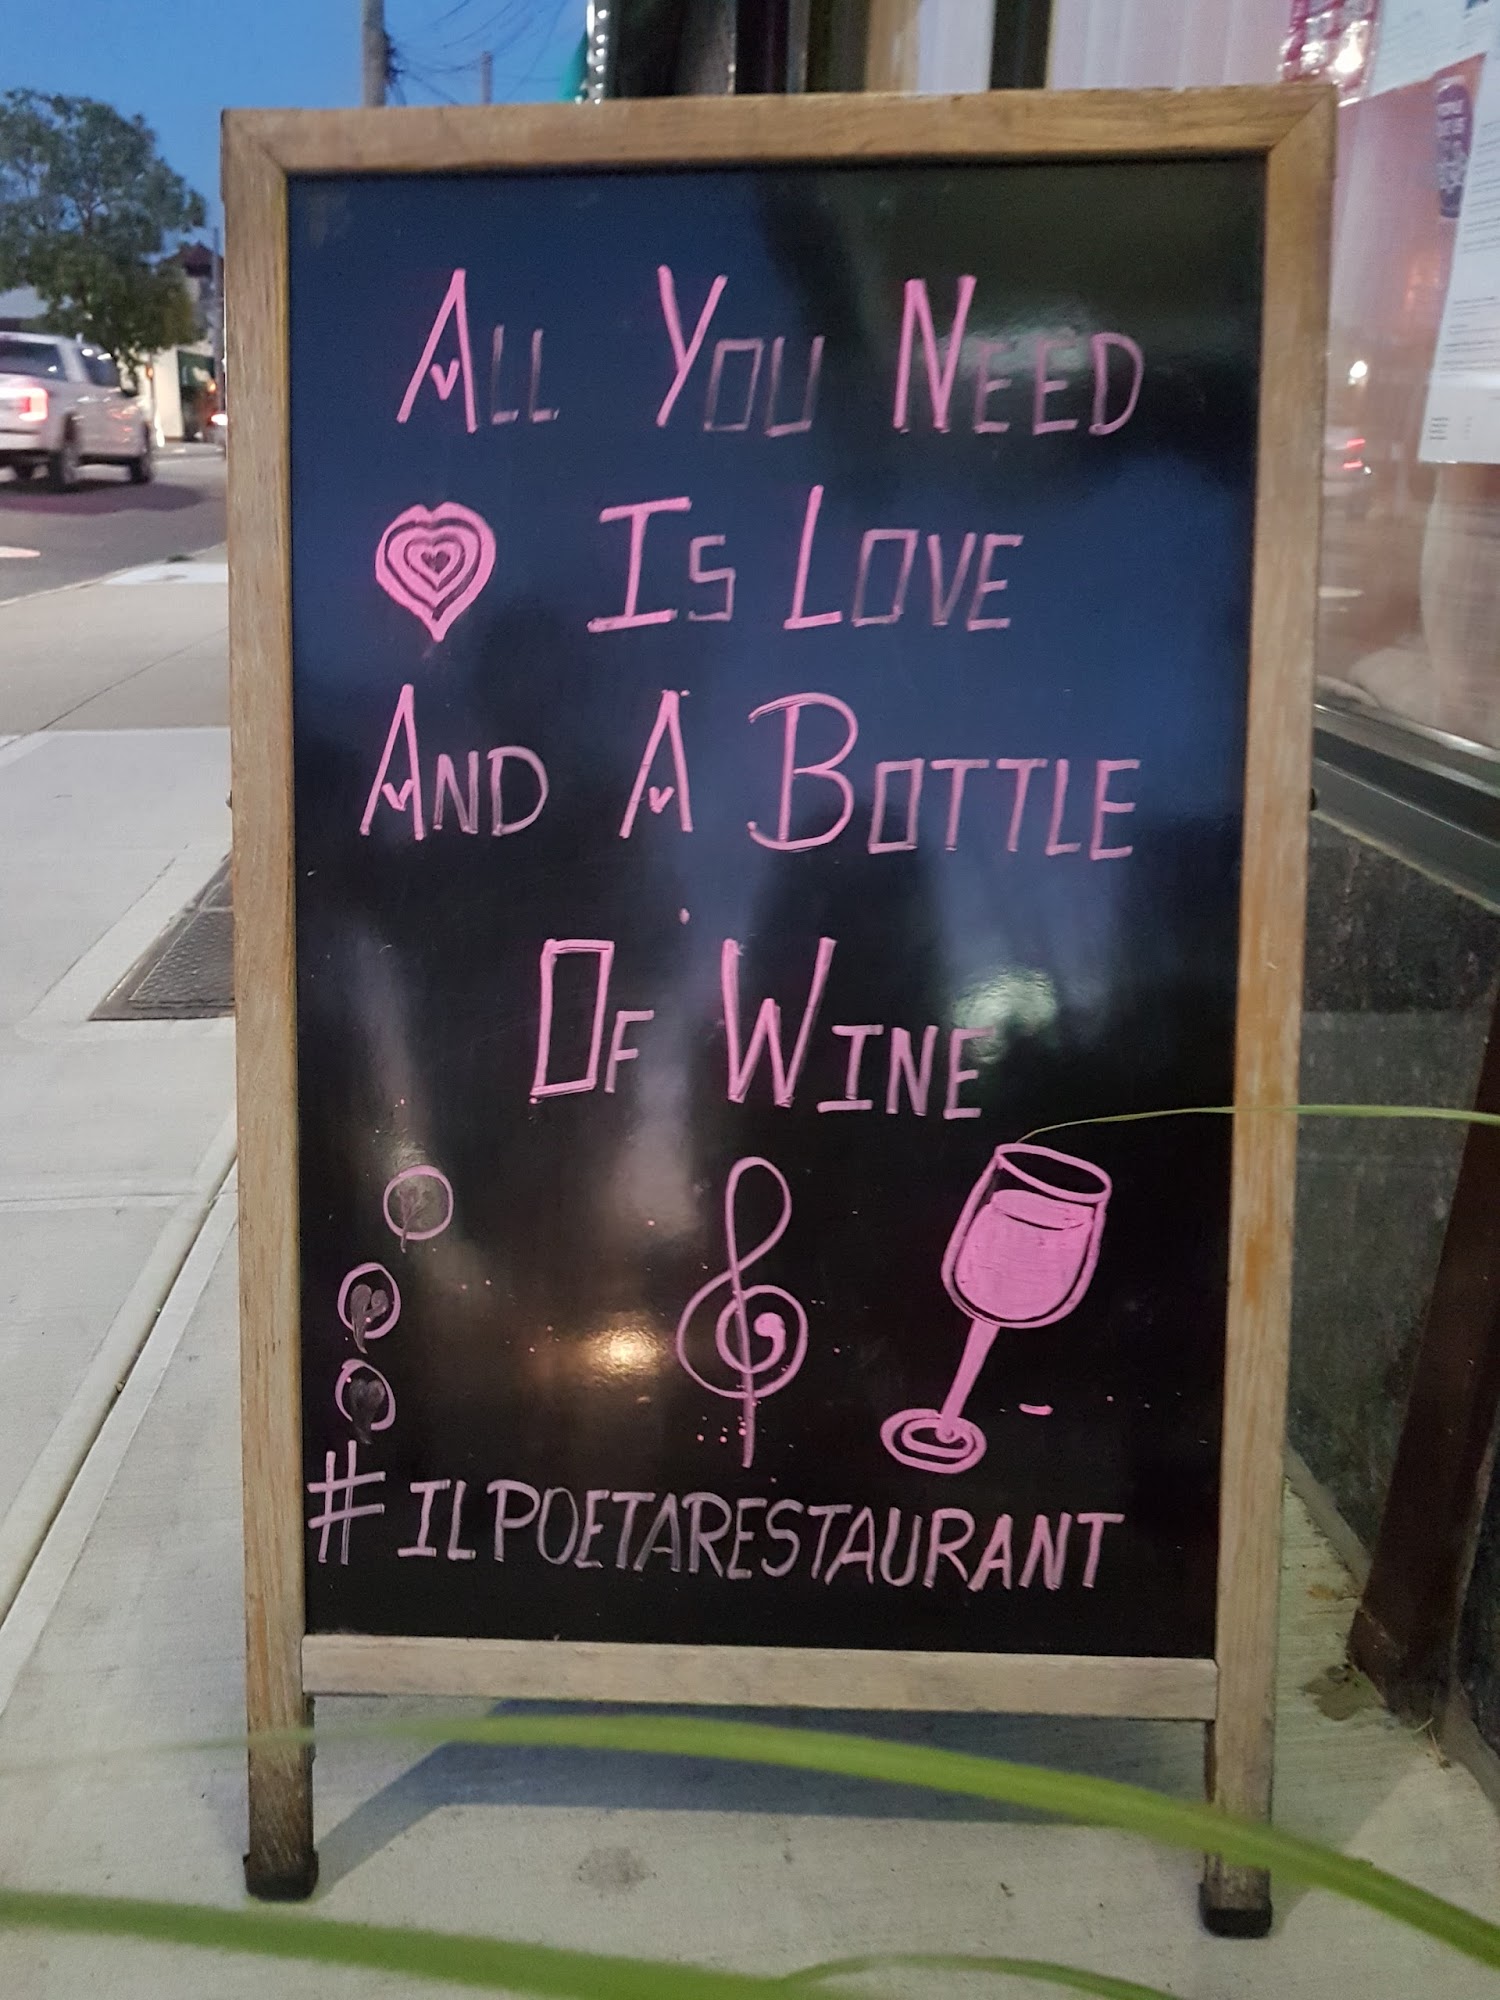 All You Need
Is Love
And A Bottle
Of Wine
#ILPOETARESTAURANT